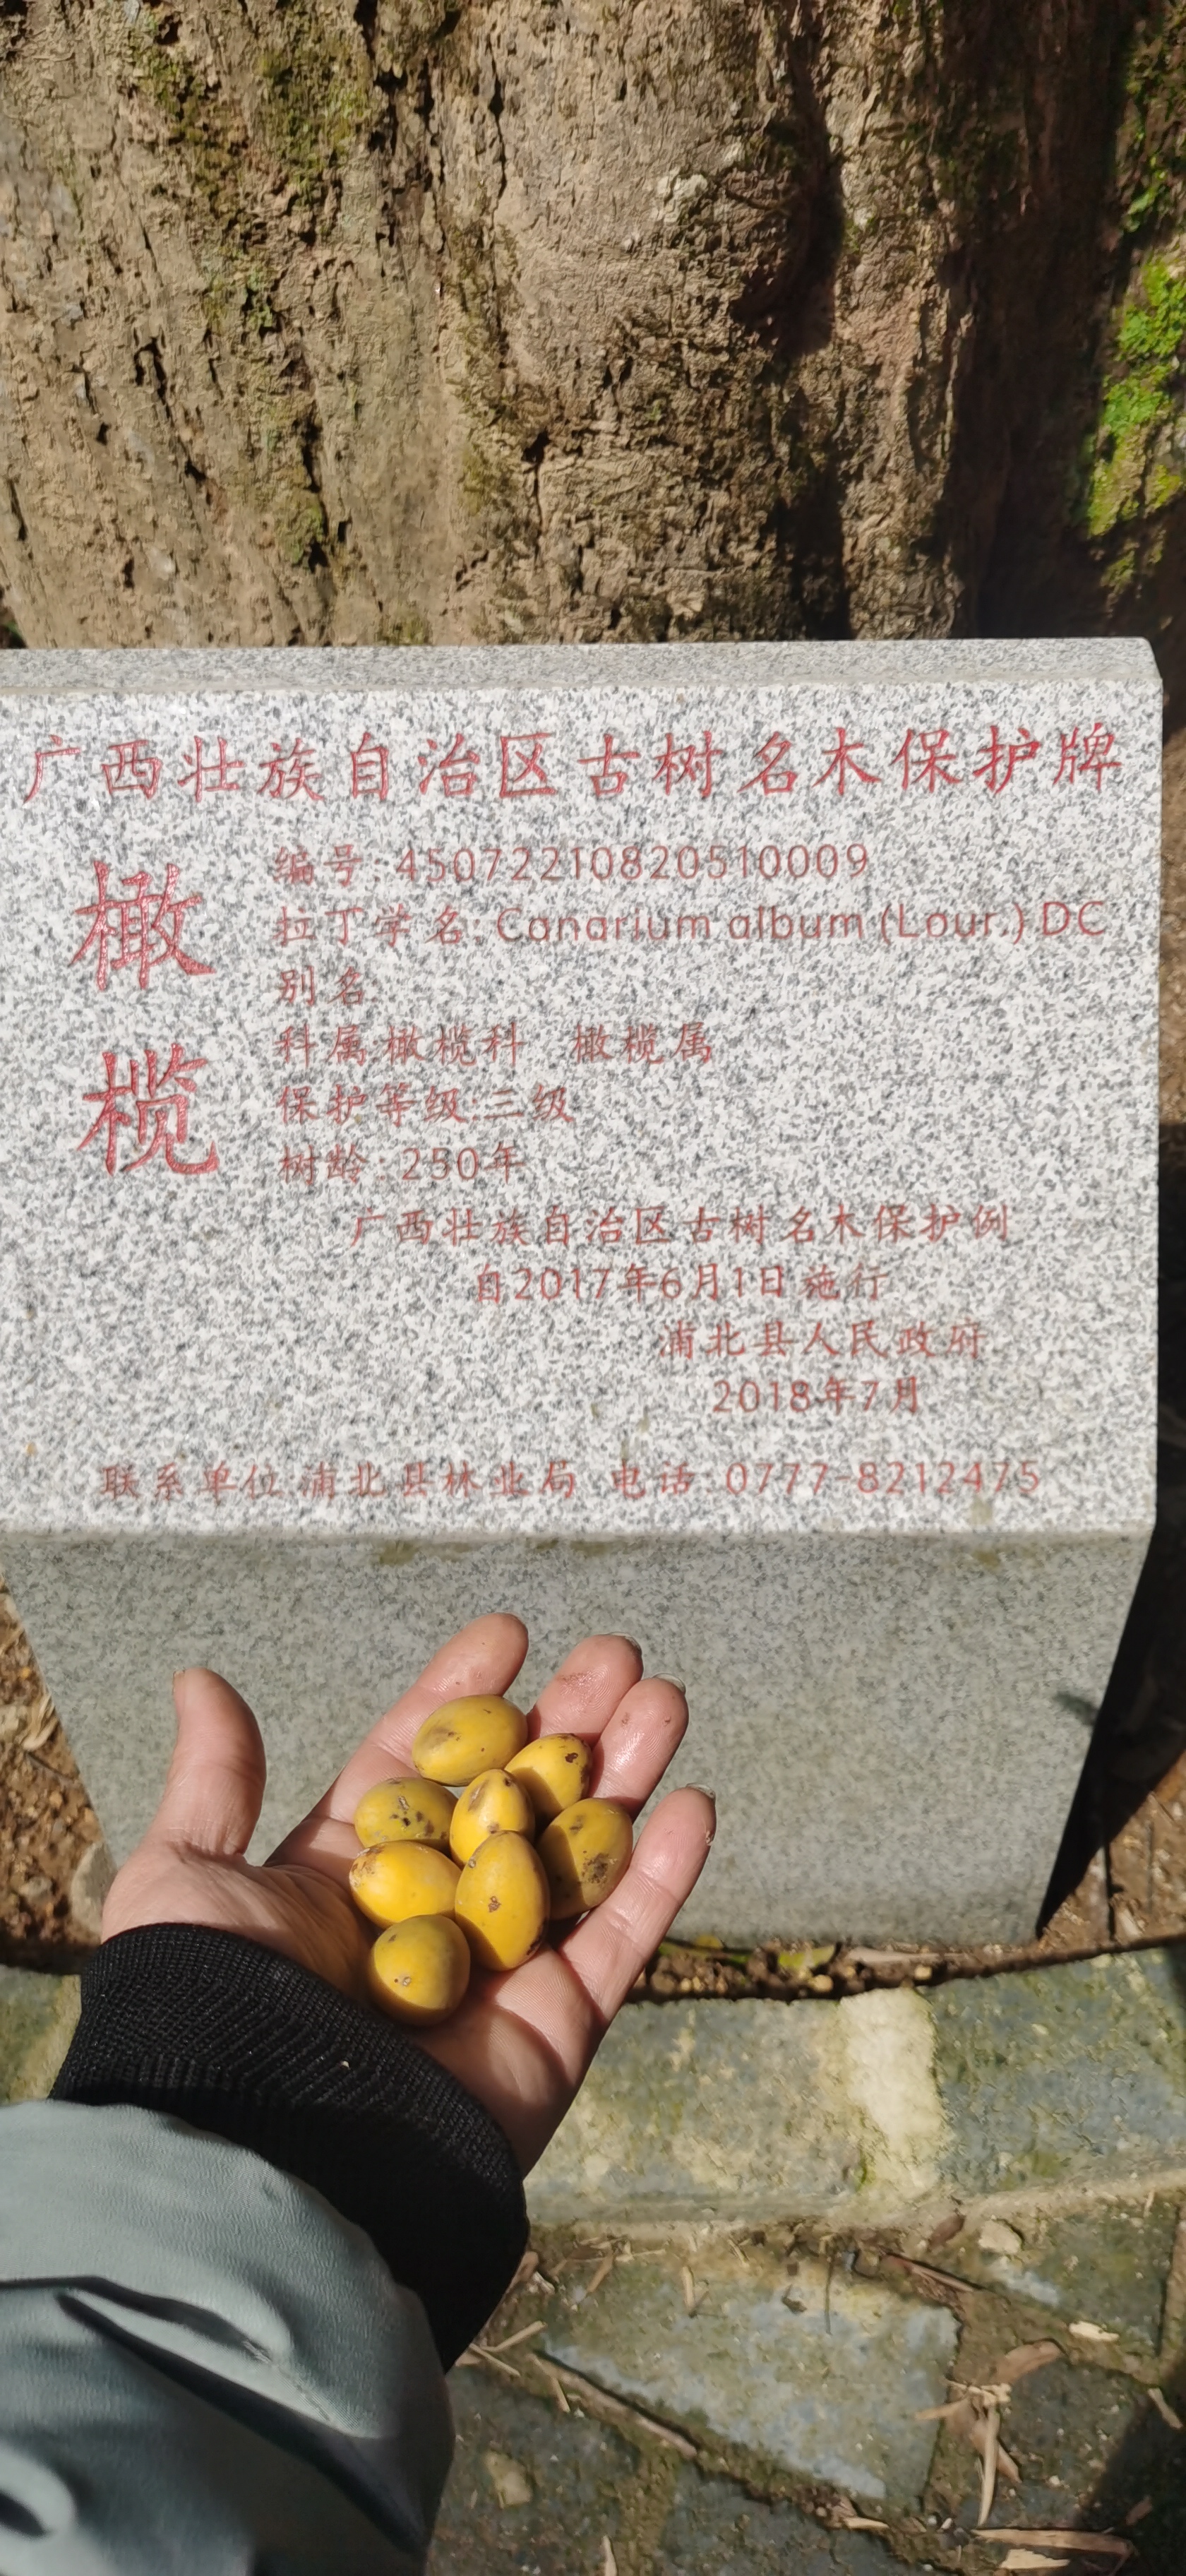 广西壮族自治区古树名木保护牌
橄榄
编号: 45072210820510009
拉丁学名: Canarium album (Lour.) DC
别名:
科属:橄榄科 橄榄属
保护等级:三级
树龄: 250年
广西壮族自治区古树名木保护例
自2017年6月1日施行
浦北县人民政府
2018年7月
联系单位:浦北县林业局 电话: 0777-8212475